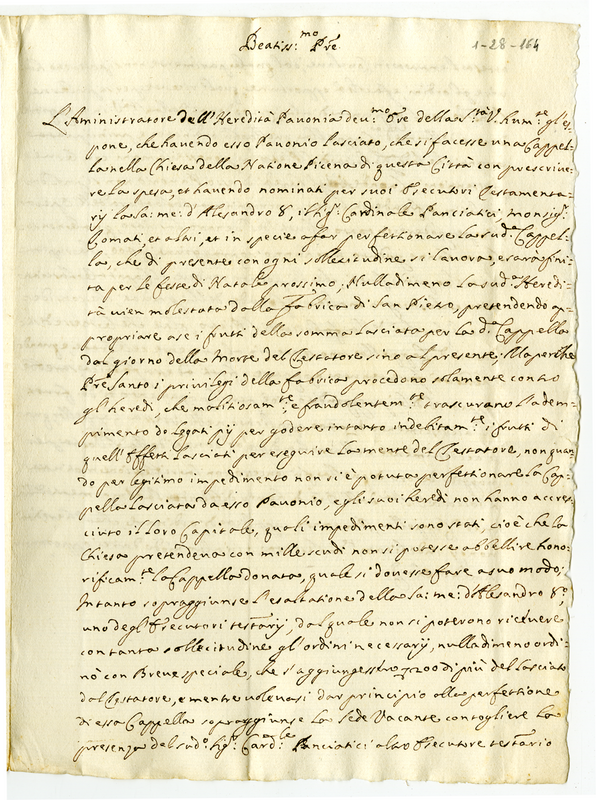 Beatiss:mo Pre
1-28-164
L'Aministratore dell'Heredità Pavonia deu.mo Ore della S.tà V. hum.te gl'es
pone, che havendo esso Pavonio lasciato, che si facesse una Cappel
la nella Chiesa della Natione Picena di questa Città con prescrive
re la spesa, et havendo nominati per suoi Esecutori Testamenta
rij la Sa: me: d'Alesandro 8, il Sig.r Cardinale Panciatici, Monsig.r
Comati, et altri, et in specie a far perfettionare la sud.a Cappel
la, che di presente con ogni sollecitudine si lavora, e sarà fini
ta per le feste di Natale prossimo; Nulladimeno la sud.a Heredi
tà vien molestata dalla Fabrica di San Pietro, pretendendo ap
propriare a se i frutti della somma lasciata per la d.a Cappella
dal giorno della Morte del Testatore sino al presente; Ma perche
Pre Santo i privilegi della fabrica procedono solamente contro
gl'heredi, che malitiosam.te, e fraudolentem.te trascurano l'adem
pimento de legati pij per godere intanto indebitam.te i frutti di
quell'Effetti lasciati per eseguire la mente del Testatore, non quan
do per legitimo impedimento non si è potuta perfettionare la Cap
pella lasciata da esso Pavonio, e gli suoi heredi non hanno accres
ciuto il loro Capitale, quali impedimenti sono stati, cioè che la
Chiesa pretendeva con mille scudi non si potesse abbellire hono
rificam.te la Cappella donata, quale si dovesse fare a suo modo;
Intanto sopraggiunse l'esaltatione della Sa: me: d'Alesandro 8o,
uno degl'Esecutori testarij, dal quale non si poterono ricevere
con tanta sollecitudine gl'ordini necessarij, nulladimeno ordi
nò con Breve speciale, che s'aggiungessero 200 di più del lasciato
dal Testatore, e mentre volevasi dar principio alla perfettione
di essa Cappella sopraggiunse la Sede Vacante con togliere la
presenza del sud.o Sig.r Card.le Panciatici altro Esecutore testario